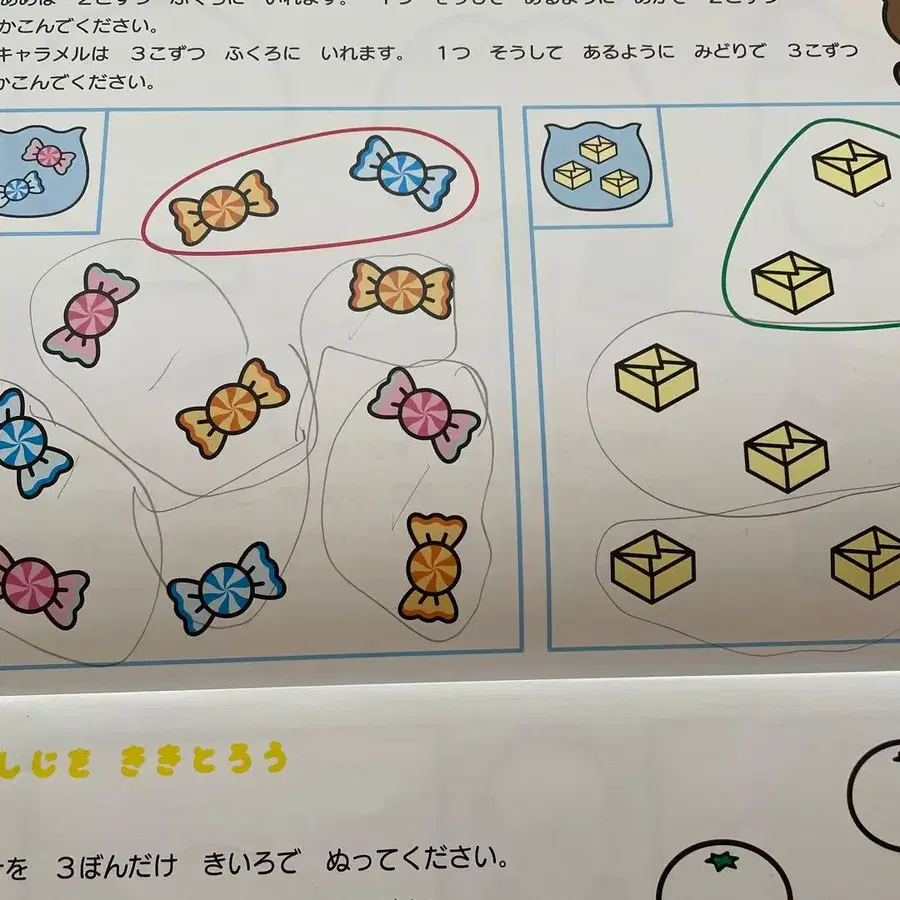 あめは 2こずつ ふくろに いれます。 1つ そうして あるように あかで 2こずつ
かこんでください。
キャラメルは 3こずつ ふくろに いれます。 1つ そうして あるように みどりで 3こずつ
かこんでください。
しじを ききとろう
を 3ぼんだけ きいろで ぬってください。